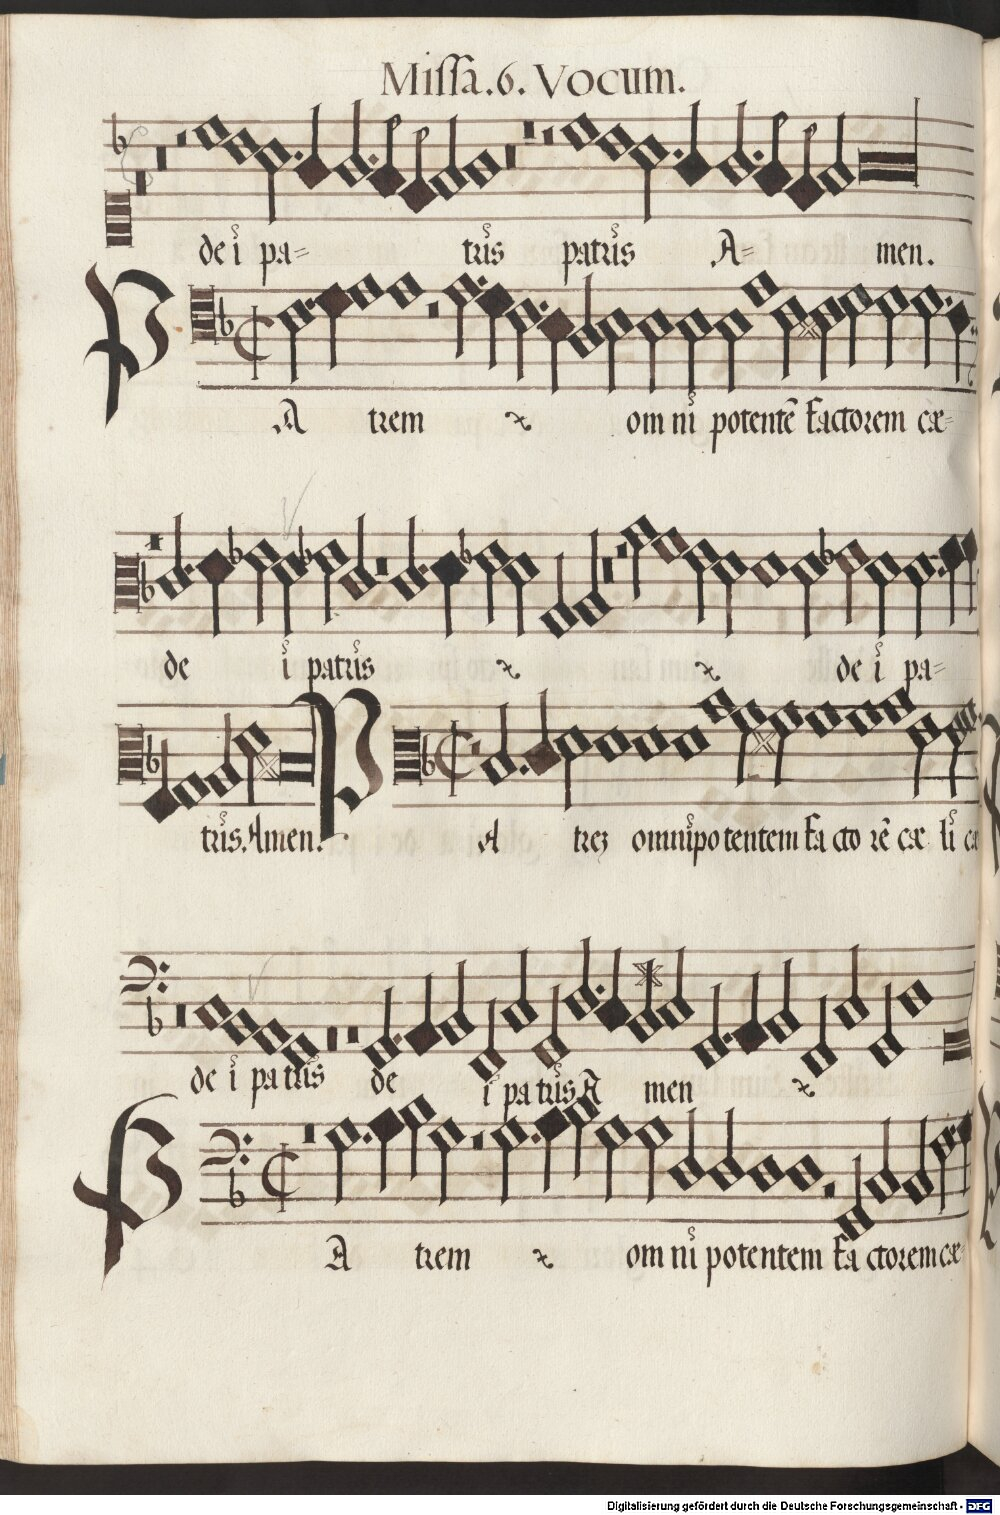 Missa.6. Vocum.
de i pa= tris patris A= men.
PA trem om ni potentē factorem cæ=
de i patris de i pa=
tris. Amen. PA trez omnipotentem fa cto rē cæ li cæ
de i pa tris de i pa tris A men
PA trem om ni potentem fa ctorem cæ=
Digitalisierung gefördert durch die Deutsche Forschungsgemeinschaft - DFG